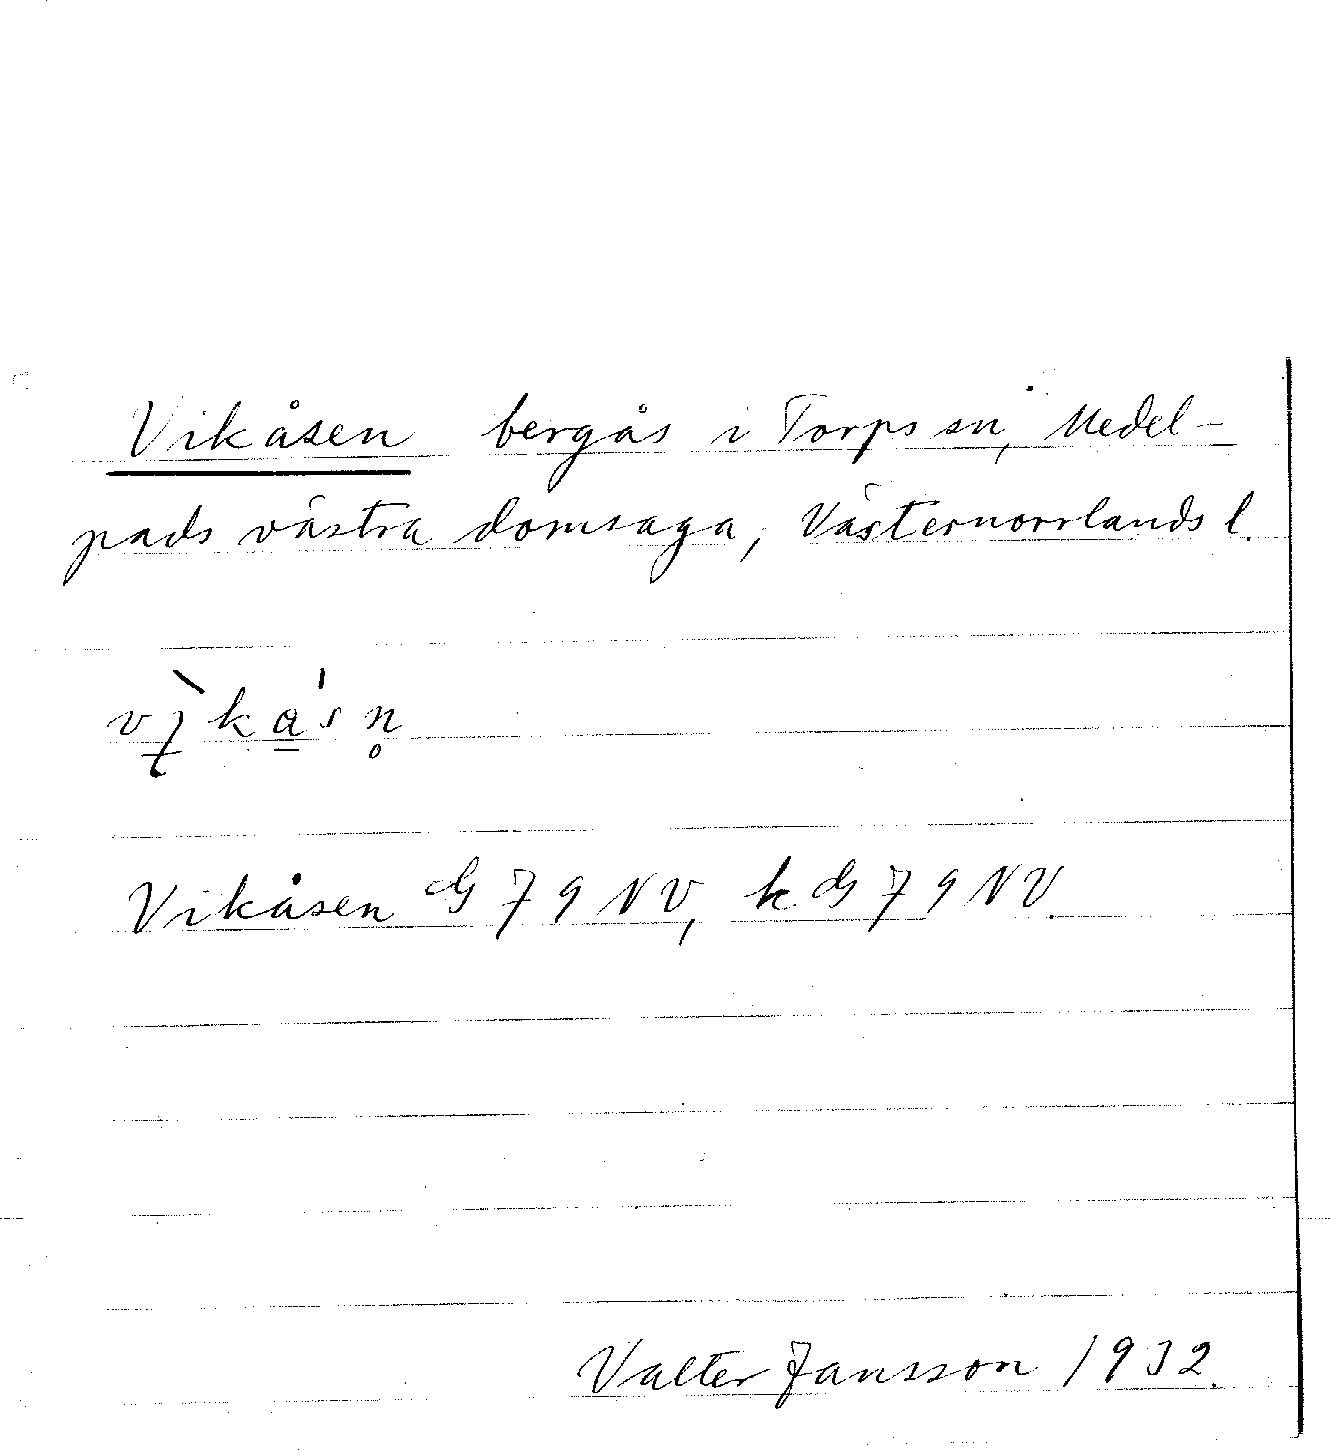 Vikåsen bergås i Torps sn, Medel-
pads västra domsaga, Västernorrlands l.
Vikåsen G 79 NV, k G 79 NV.
Valter Jansson 1932.